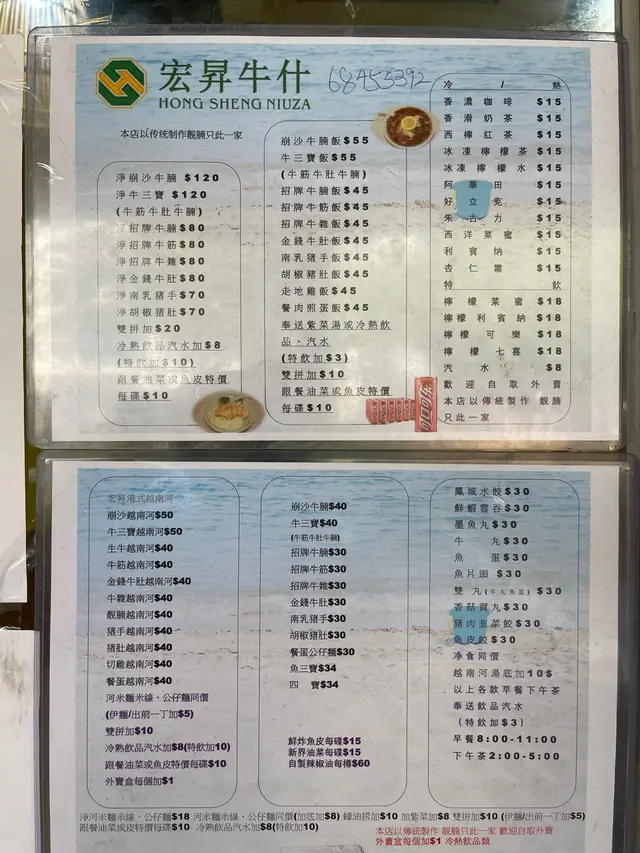 宏昇牛什
HONG SHENG NIUZA
68455392
本店以传统制作靓腩只此一家
淨崩沙牛腩 $120
淨牛三寶 $120
(牛筋牛肚牛腩)
淨招牌牛腩$80
淨招牌牛筋$80
淨招牌牛雜$80
淨金錢牛肚$80
淨南乳猪手$70
淨胡椒猪肚$70
雙拼加$20
冷熱飲品汽水加$8
(特飲加$10)
跟餐油菜或魚皮特價
每碟$10
崩沙牛腩飯$55
牛三寶飯$55
(牛筋牛肚牛腩)
招牌牛腩飯$45
招牌牛筋飯$45
招牌牛雜飯$45
金錢牛肚飯$45
南乳猪手飯$45
胡椒猪肚飯$45
走地雞飯$45
餐肉煎蛋飯$45
奉送紫菜湯或冷熱飲
品、汽水
(特飲加$3)
雙拼加$10
跟餐油菜或魚皮特價
每碟$10
可口可乐
冷 / 熱
香濃咖啡 $15
香滑奶茶 $15
西檸紅茶 $15
冰凍檸檬茶 $15
冰凍檸檬水 $15
阿華田 $15
好立克 $15
朱古力 $15
西洋菜蜜 $15
利賓納 $15
杏仁霜 $15
特 飲
檸檬菜蜜 $18
檸檬利賓納 $18
檸檬可樂 $18
檸檬七喜 $18
汽水 $8
歡迎自取外賣
本店以傳統製作 靚腩
只此一家
宏昇港式越南河
崩沙越南河$50
牛三寶越南河$50
生牛越南河$40
牛筋越南河$40
金錢牛肚越南河$40
牛雜越南河$40
靚腩越南河$40
猪手越南河$40
猪肚越南河$40
切雞越南河$40
餐蛋越南河$40
河米麵米線、公仔麵同價
(伊麵/出前一丁加$5)
雙拼加$10
冷熱飲品汽水加$8(特飲加10)
跟餐油菜或魚皮特價每碟$10
外賣盒每個加$1
崩沙牛腩$40
牛三寶$40
(牛筋牛肚牛腩)
招牌牛腩$30
招牌牛筋$30
招牌牛雜$30
金錢牛肚$30
南乳猪手$30
胡椒猪肚$30
餐蛋公仔麵$30
魚三寶$34
四 寶$34
鮮炸魚皮每碟$15
新界油菜每碟$15
自製辣椒油每樽$60
鳳城水餃$30
鮮蝦雲吞$30
墨魚丸$30
牛 丸$30
魚 蛋$30
魚片頭 $30
雙丸(牛丸魚蛋) $30
香菇貢丸$30
猪肉韭菜餃$30
魚皮餃$30
净食同價
越南河湯底加10$
以上各款早餐下午茶
奉送飲品汽水
(特飲加$3)
早餐8:00-11:00
下午茶2:00-5:00
淨河米麵米線、公仔麵$18 河米麵米線、公仔麵同價(加底加$8) 蠔油撈加$10 加紫菜加$8 雙拼加$10 (伊麵/出前一丁加$5)
跟餐油菜或皮特價每碟$10 冷熱飲品汽水加$8(特飲加$10)
本店以傳統製作 靚腩只此一家 歡迎自取外賣
外賣盒每個加$1 冷熱飲品類